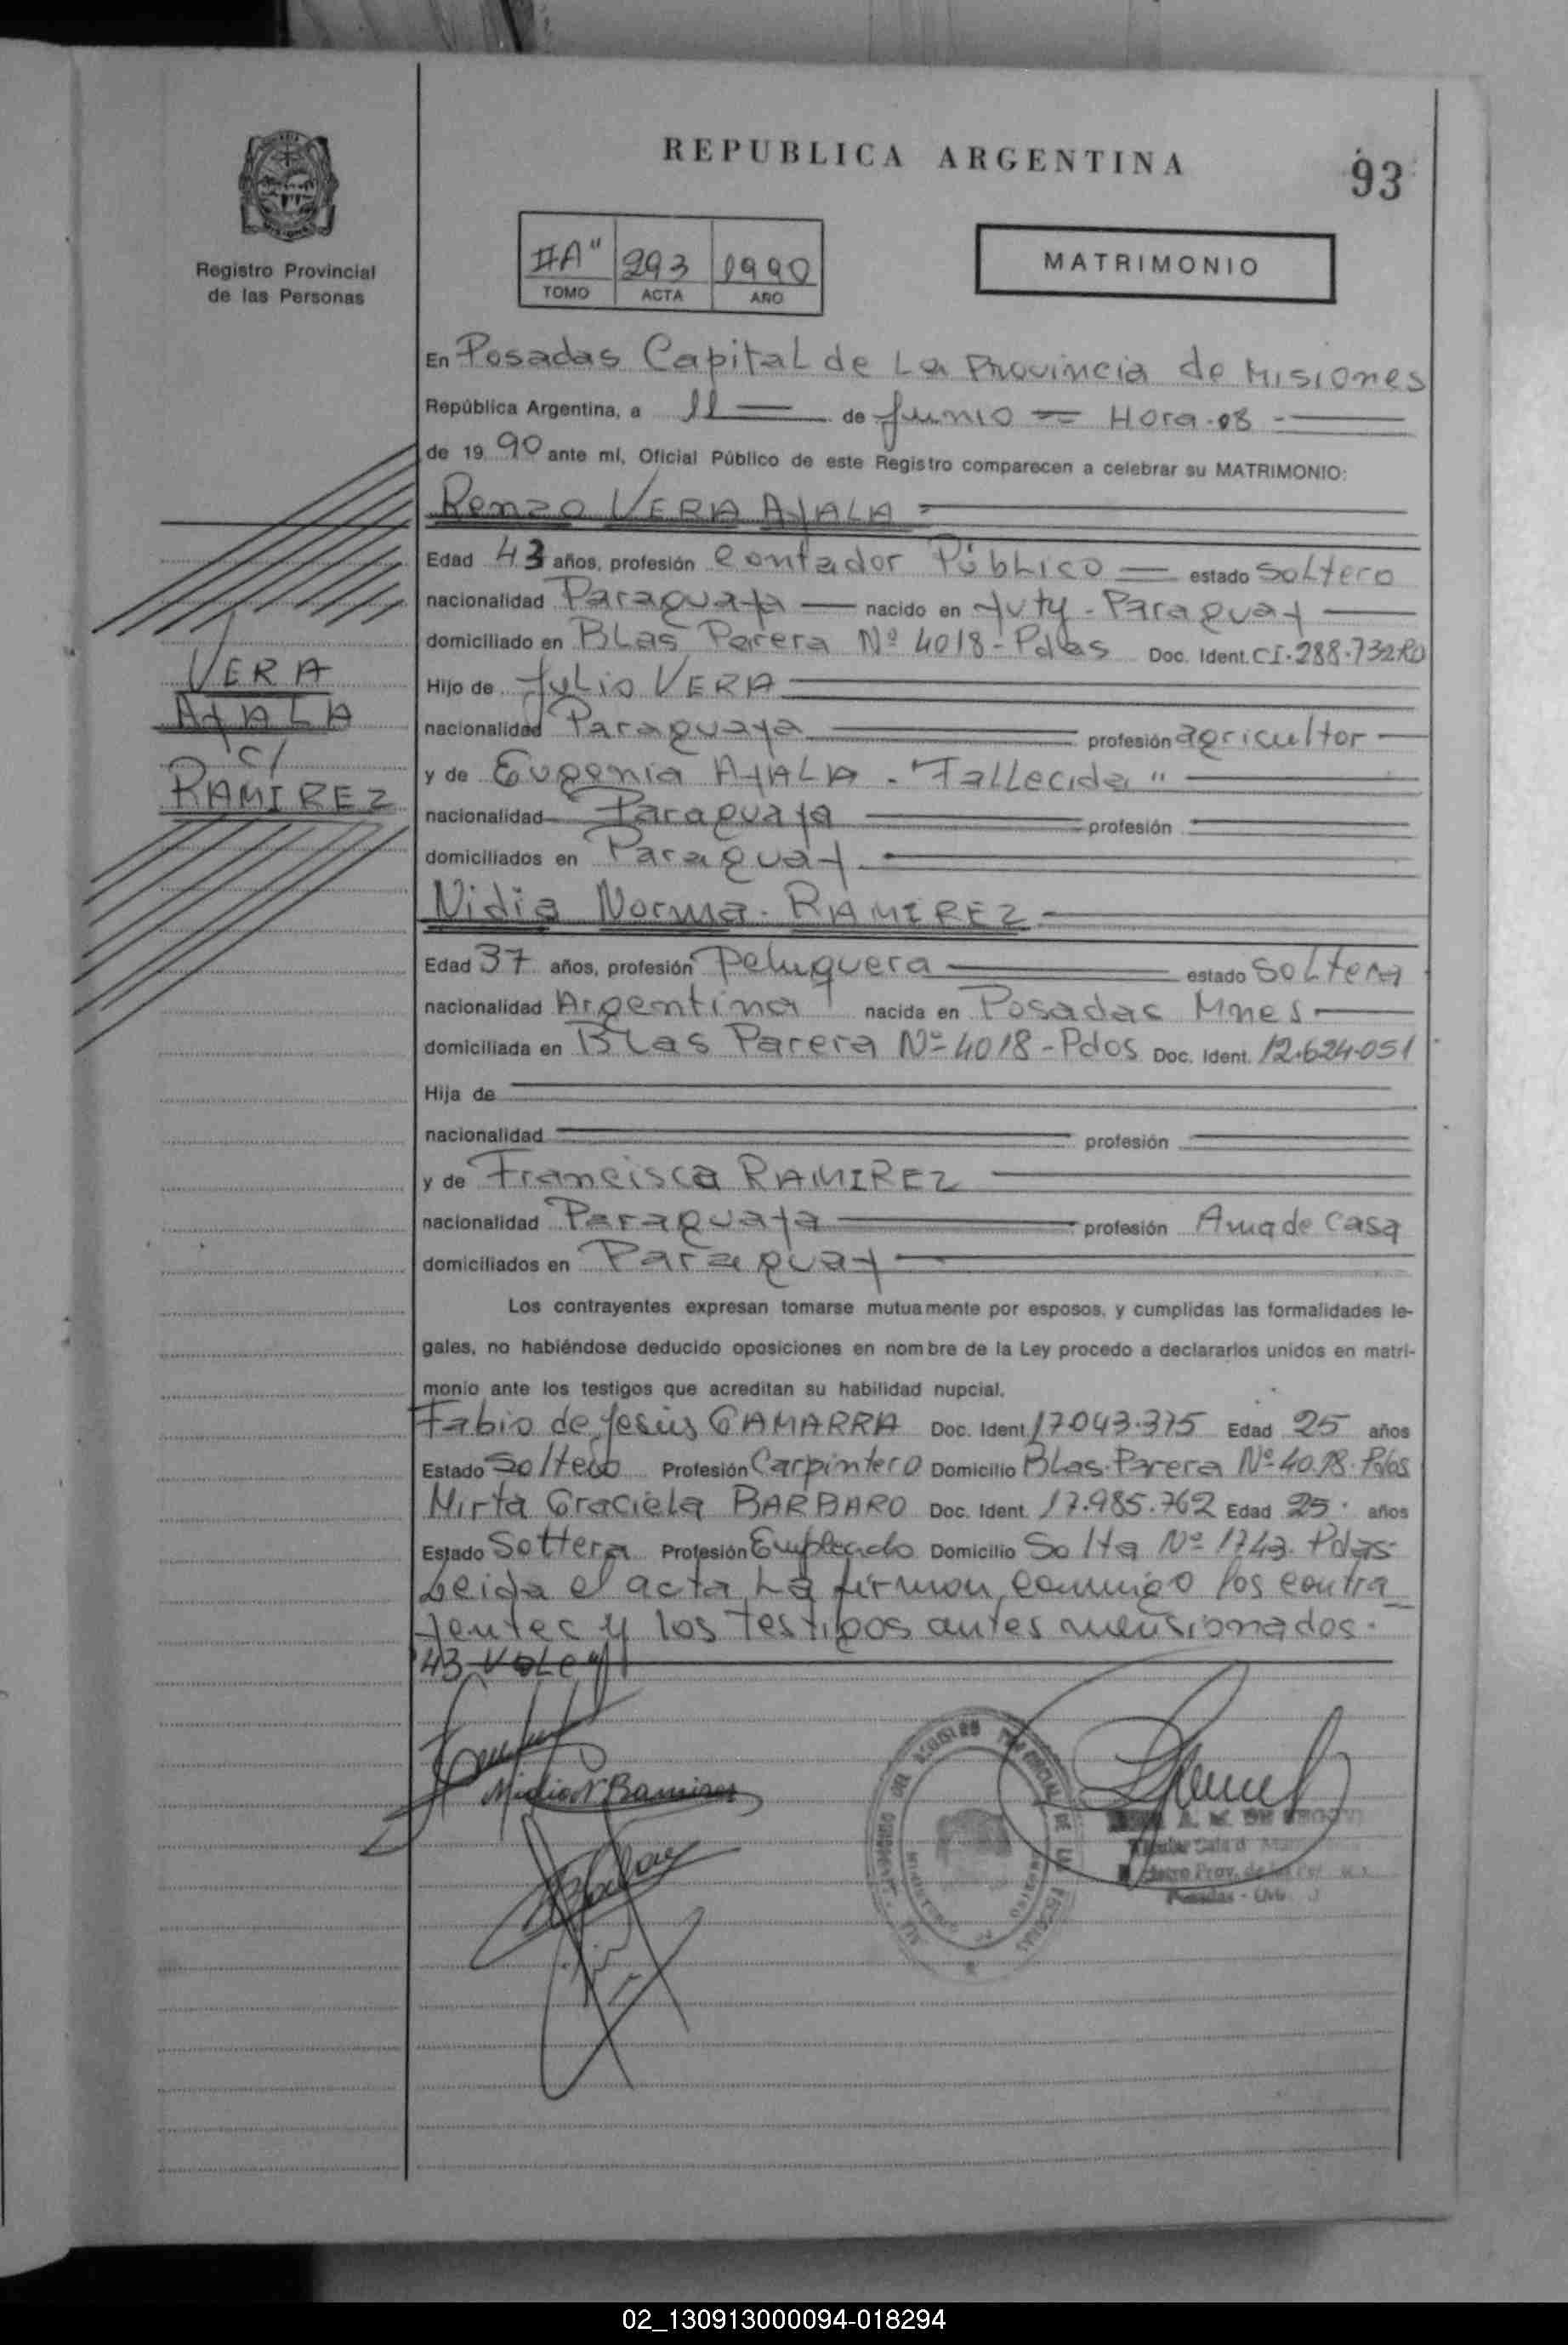 REPUBLICA ARGENTINA
93
Registro Provincial
de las Personas
II A" 293 1990
TOMO ACTA AÑO
MATRIMONIO
En Posadas Capital de La Provincia de Misiones
República Argentina, a 11 de Junio = Hora.08
de 19 90 ante mí, Oficial Público de este Registro comparecen a celebrar su MATRIMONIO:
Renzo VERA AYALA
Edad 43 años, profesión Contador Público estado Soltero
nacionalidad Paraguaya nacido en Yuty - Paraguay
domiciliado en Blas Parera Nº 4018 - Pdas Doc. Ident. CI. 288.732
Hijo de Julio VERA
nacionalidad Paraguaya profesión agricultor
y de Eugenia AYALA - "Fallecida"
nacionalidad Paraguaya profesión
domiciliados en Paraguay
VERA
AYALA
c/
RAMIREZ
Nidia Norma RAMIREZ
Edad 37 años, profesión Peluquera estado Soltera
nacionalidad Argentina nacida en Posadas Mnes
domiciliada en Blas Parera Nº 4018 - Pdas Doc. Ident. 12.624.051
Hija de
nacionalidad profesión
y de Francisca RAMIREZ
nacionalidad Paraguaya profesión Ama de Casa
domiciliados en Paraguay
Los contrayentes expresan tomarse mutuamente por esposos, y cumplidas las formalidades le-
gales, no habiéndose deducido oposiciones en nombre de la Ley procedo a declararlos unidos en matri-
monio ante los testigos que acreditan su habilidad nupcial.
Fabio de Jesús GAMARRA Doc. Ident. 17043.375 Edad 25 años
Estado Soltero Profesión Carpintero Domicilio Blas Parera Nº 4018. Pdas
Mirta Graciela BARBARO Doc. Ident. 17.985.762 Edad 25 años
Estado Soltera Profesión Empleada Domicilio Salta Nº 1743. Pdas
Leida el acta La firman conmigo los contra
yentes y los testigos antes mensionados.
"43 Vale"
Nidia N Ramirez
02_130913000094-018294